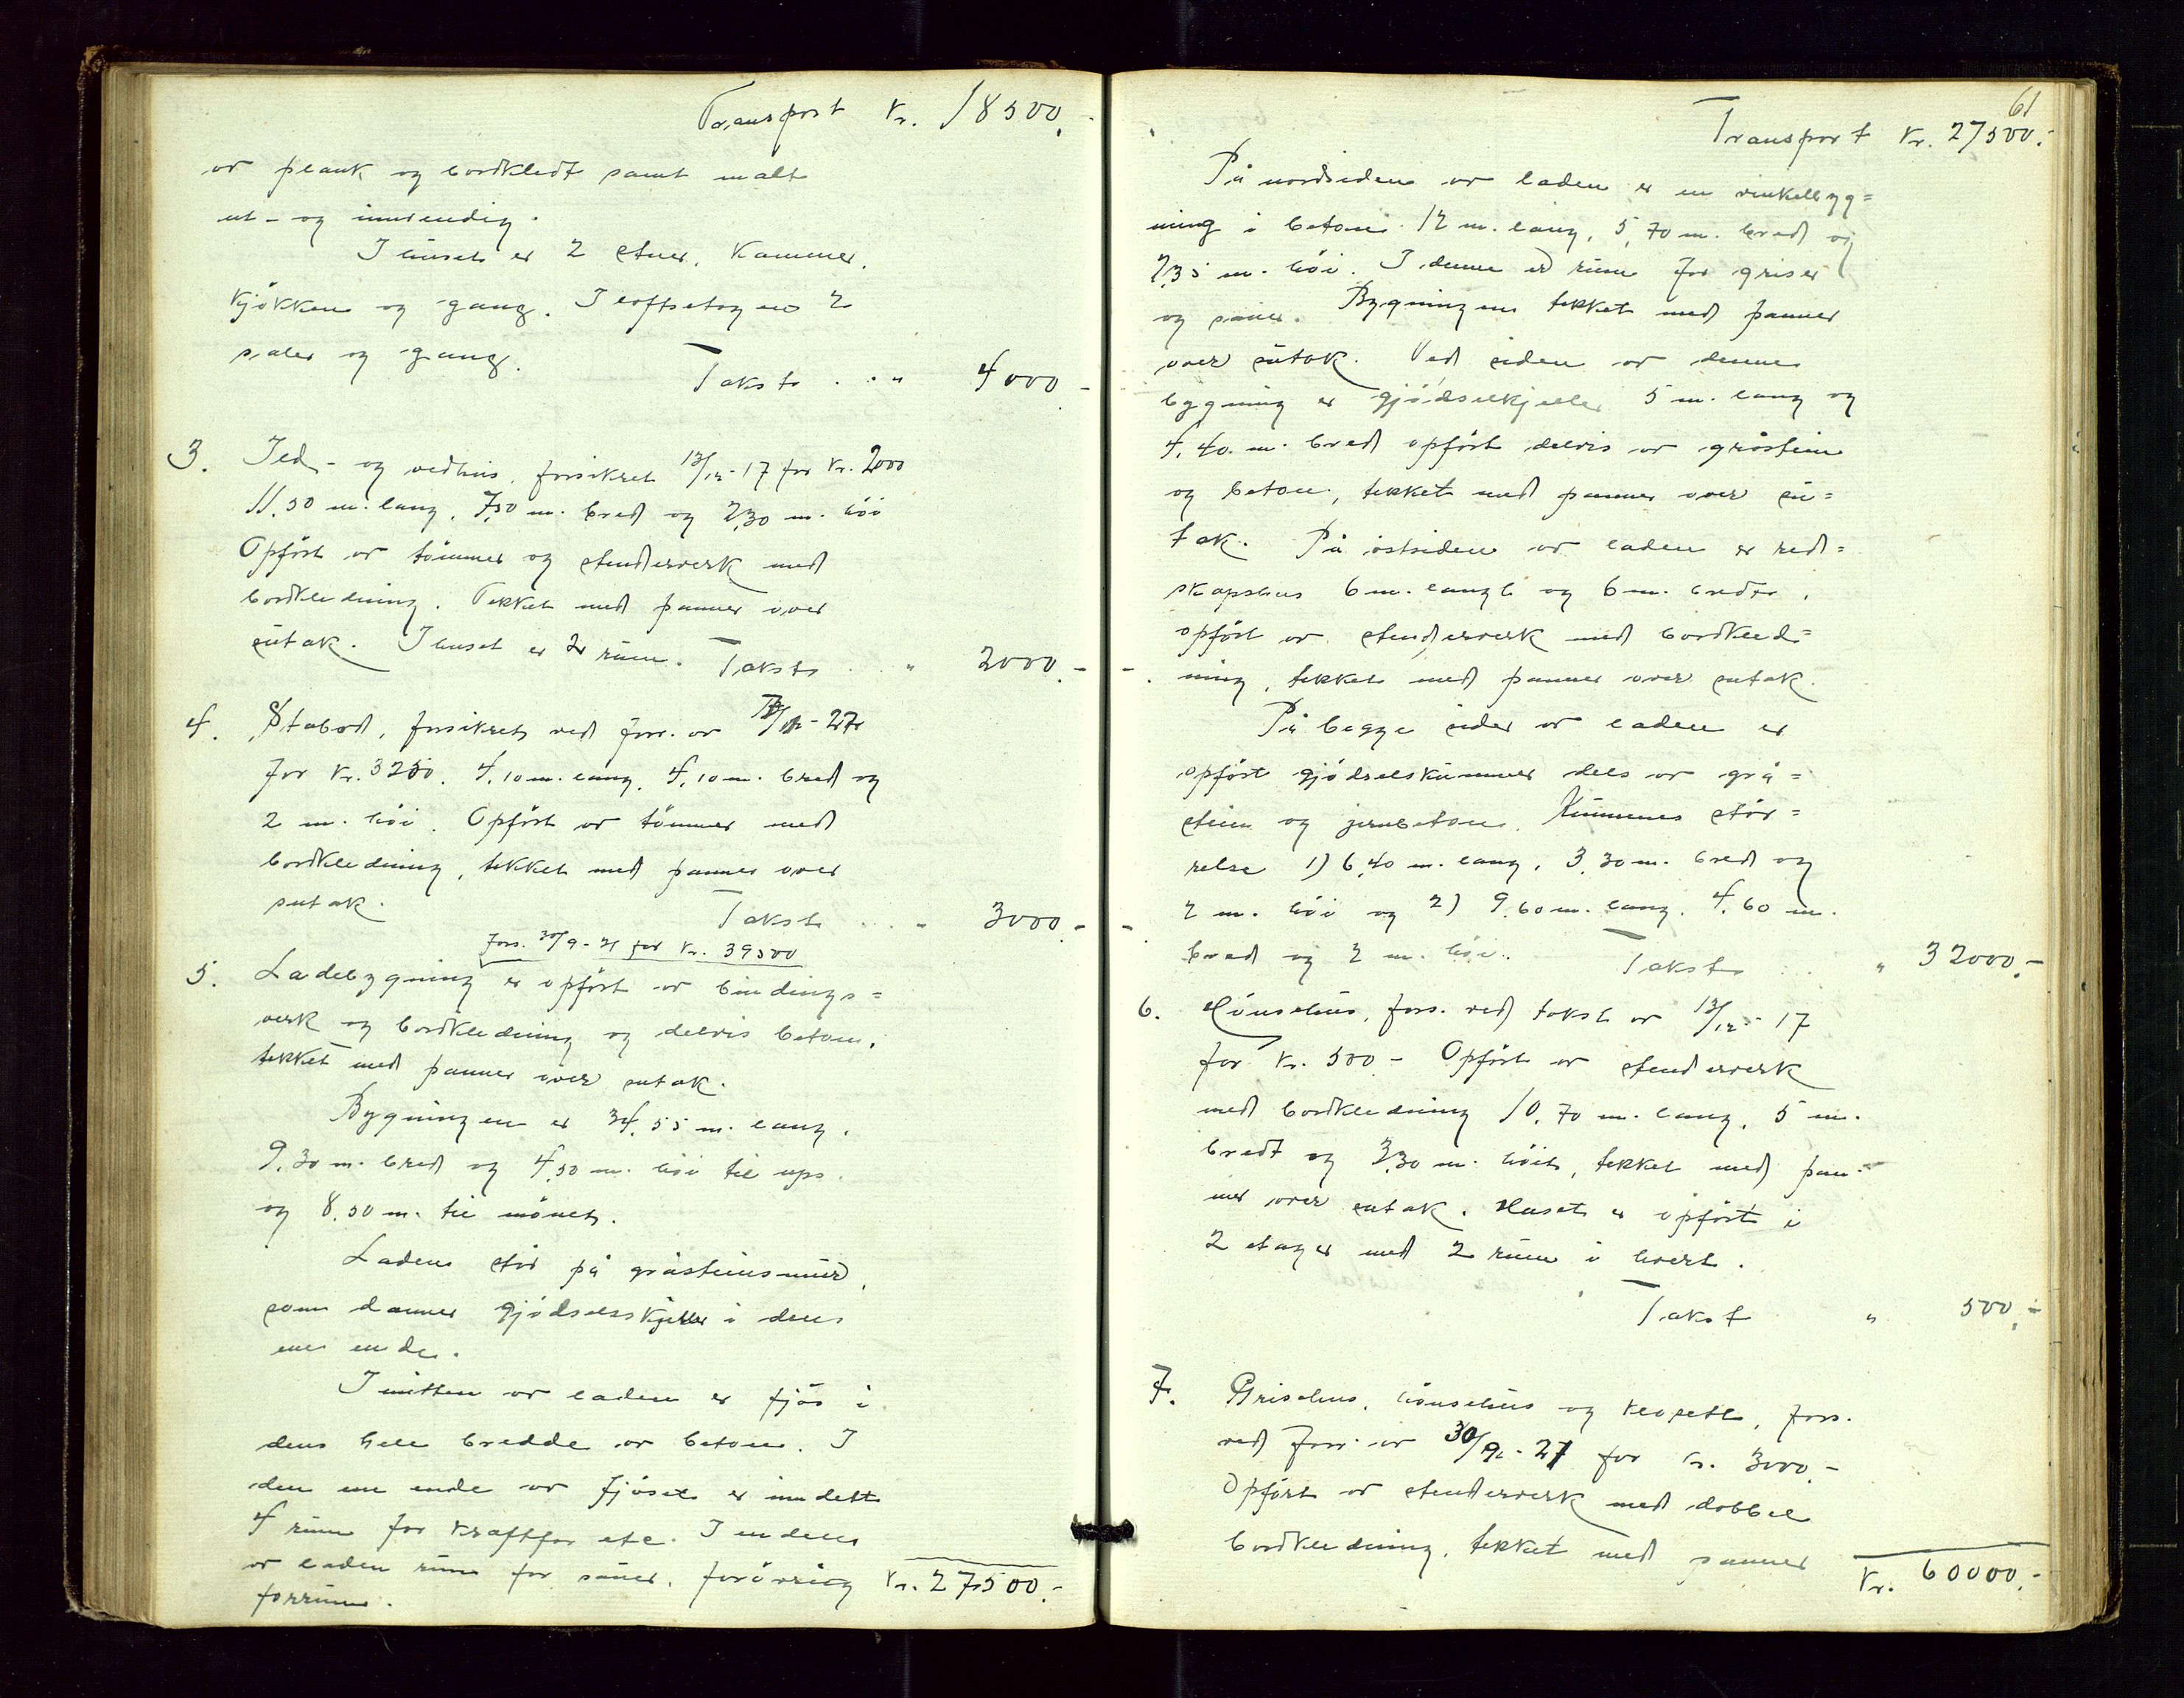 Transport Kr. 18500.-
av plank og bordkledt samt malt
ut- og innvendig.
I huset er 2 stuer, kammer,
kjøkken og gang. I loftsetagen 2
saler og gang.
Takst . . " 4000.-
3. Ild- og vedhus, forsikret 13/12-17 for kr. 2000
11,50 m. lang, 7,50 m. bred og 2,30 m. høi
Opført av tømmer og stenderverk med
bordkledning. Tekket med panner over
sutak. I huset er 2 rum. Takst . " 2000.-
4. Stabod, forsikret ved forr. av
for kr. 3250. 4,10 m. lang, 4,10 m. bred og
2 m. høi. Opført av tømmer med
bordkledning, tekket med panner over
sutak. Takst . . . " 3000.-
fors. 30/9-21 for kr. 39500
5. Ladebygning er opført av bindings=
verk og bordkledning og delvis beton,
tekket med panner over sutak.
Bygningen er 34,55 m. lang,
9,30 m. bred og 4,50 m. høi til ups.
og 8,50 m. til mønet.
Laden står på gråsteinsmur,
som danner gjødselskjeller i dens
ene ende.
I midten av laden er fjøs i
dens hele bredde av beton. I
den ene ende av fjøset er inndelt
4 rum for kraftfor etc. I en del
av laden rum for sauer, forøvrig
forrum.
Kr. 27500.-
61
Transport Kr. 27500.-
På nordsiden av laden er en vinkelbyg=
ning i beton 12 m. lang, 5,70 m. bred og
2,35 m. høi. I denne er rum for griser
og sauer. Bygningen tekket med panner
over sutak. Ved siden av denne
bygning er gjødselkjeller 5 m. lang og
4,40 m. bred opført delvis av gråstein
og beton, tekket med panner over su=
tak. På østsiden av laden er red=
skapshus 6 m. langt og 6 m. bredt,
opført av stenderverk med bordkled=
ning, tekket med panner over sutak.
På begge sider av laden er
opført gjødselskummer dels av grå=
stein og jernbeton. Kummenes stør=
relse 1) 6,40 m. lang, 3,30 m. bred og
2 m. høi og 2) 9,60 m. lang, 4,60 m.
bred og 2 m. høi. Takst . . " 32000.-
6. Hønsehus, fors. ved takst av 13/12-17
for kr. 500.- Opført av stenderverk
med bordkledning 10,70 m. lang, 5 m.
bredt og 2,30 m. høit, tekket med pan-
ner over sutak. Huset er opført i
2 etager med 2 rum i hvert.
Takst " 500.-
7. Grisehus, hønsehus og klosett, fors.
ved forr. av 30/9-21 for kr. 3000.-
Opført av stenderverk med dobbel
bordkledning, tekket med panner
Kr. 60000.-